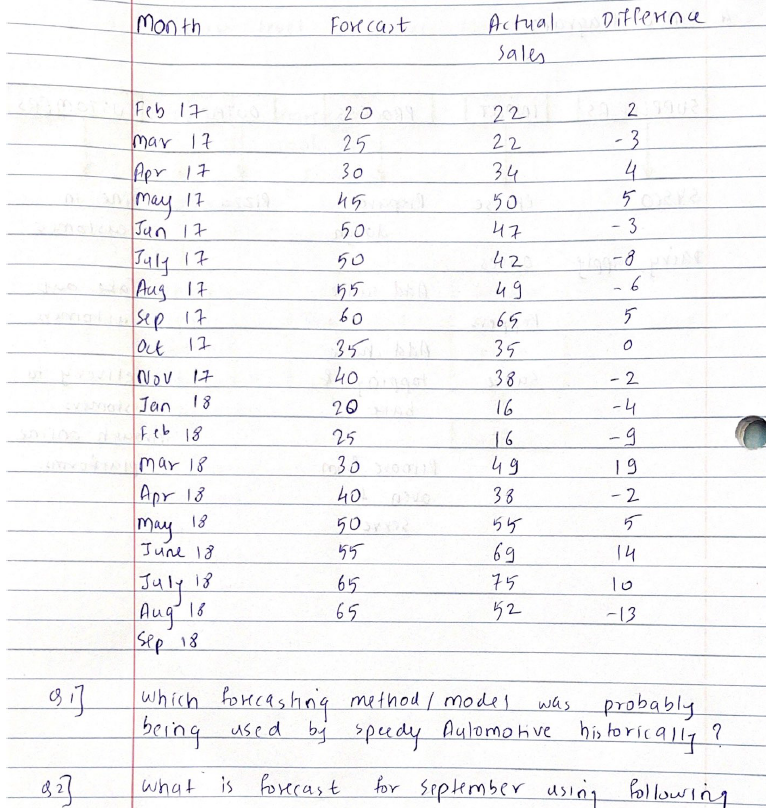 Month Forecast Actual Difference
Sales
Feb 17 20 22 2
Mar 17 25 22 -3
Apr 17 30 34 4
May 17 45 50 5
Jun 17 50 47 -3
July 17 50 42 -8
Aug 17 55 49 -6
Sep 17 60 65 5
Oct 17 35 35 0
Nov 17 40 38 -2
Jan 18 20 16 -4
Feb 18 25 16 -9
Mar 18 30 49 19
Apr 18 40 38 -2
May 18 50 55 5
June 18 55 69 14
July 18 65 75 10
Aug 18 65 52 -13
Sep 18
Q1] Which forecasting method/model was probably
being used by speedy Automotive historically?
Q2] What is forecast for September using following